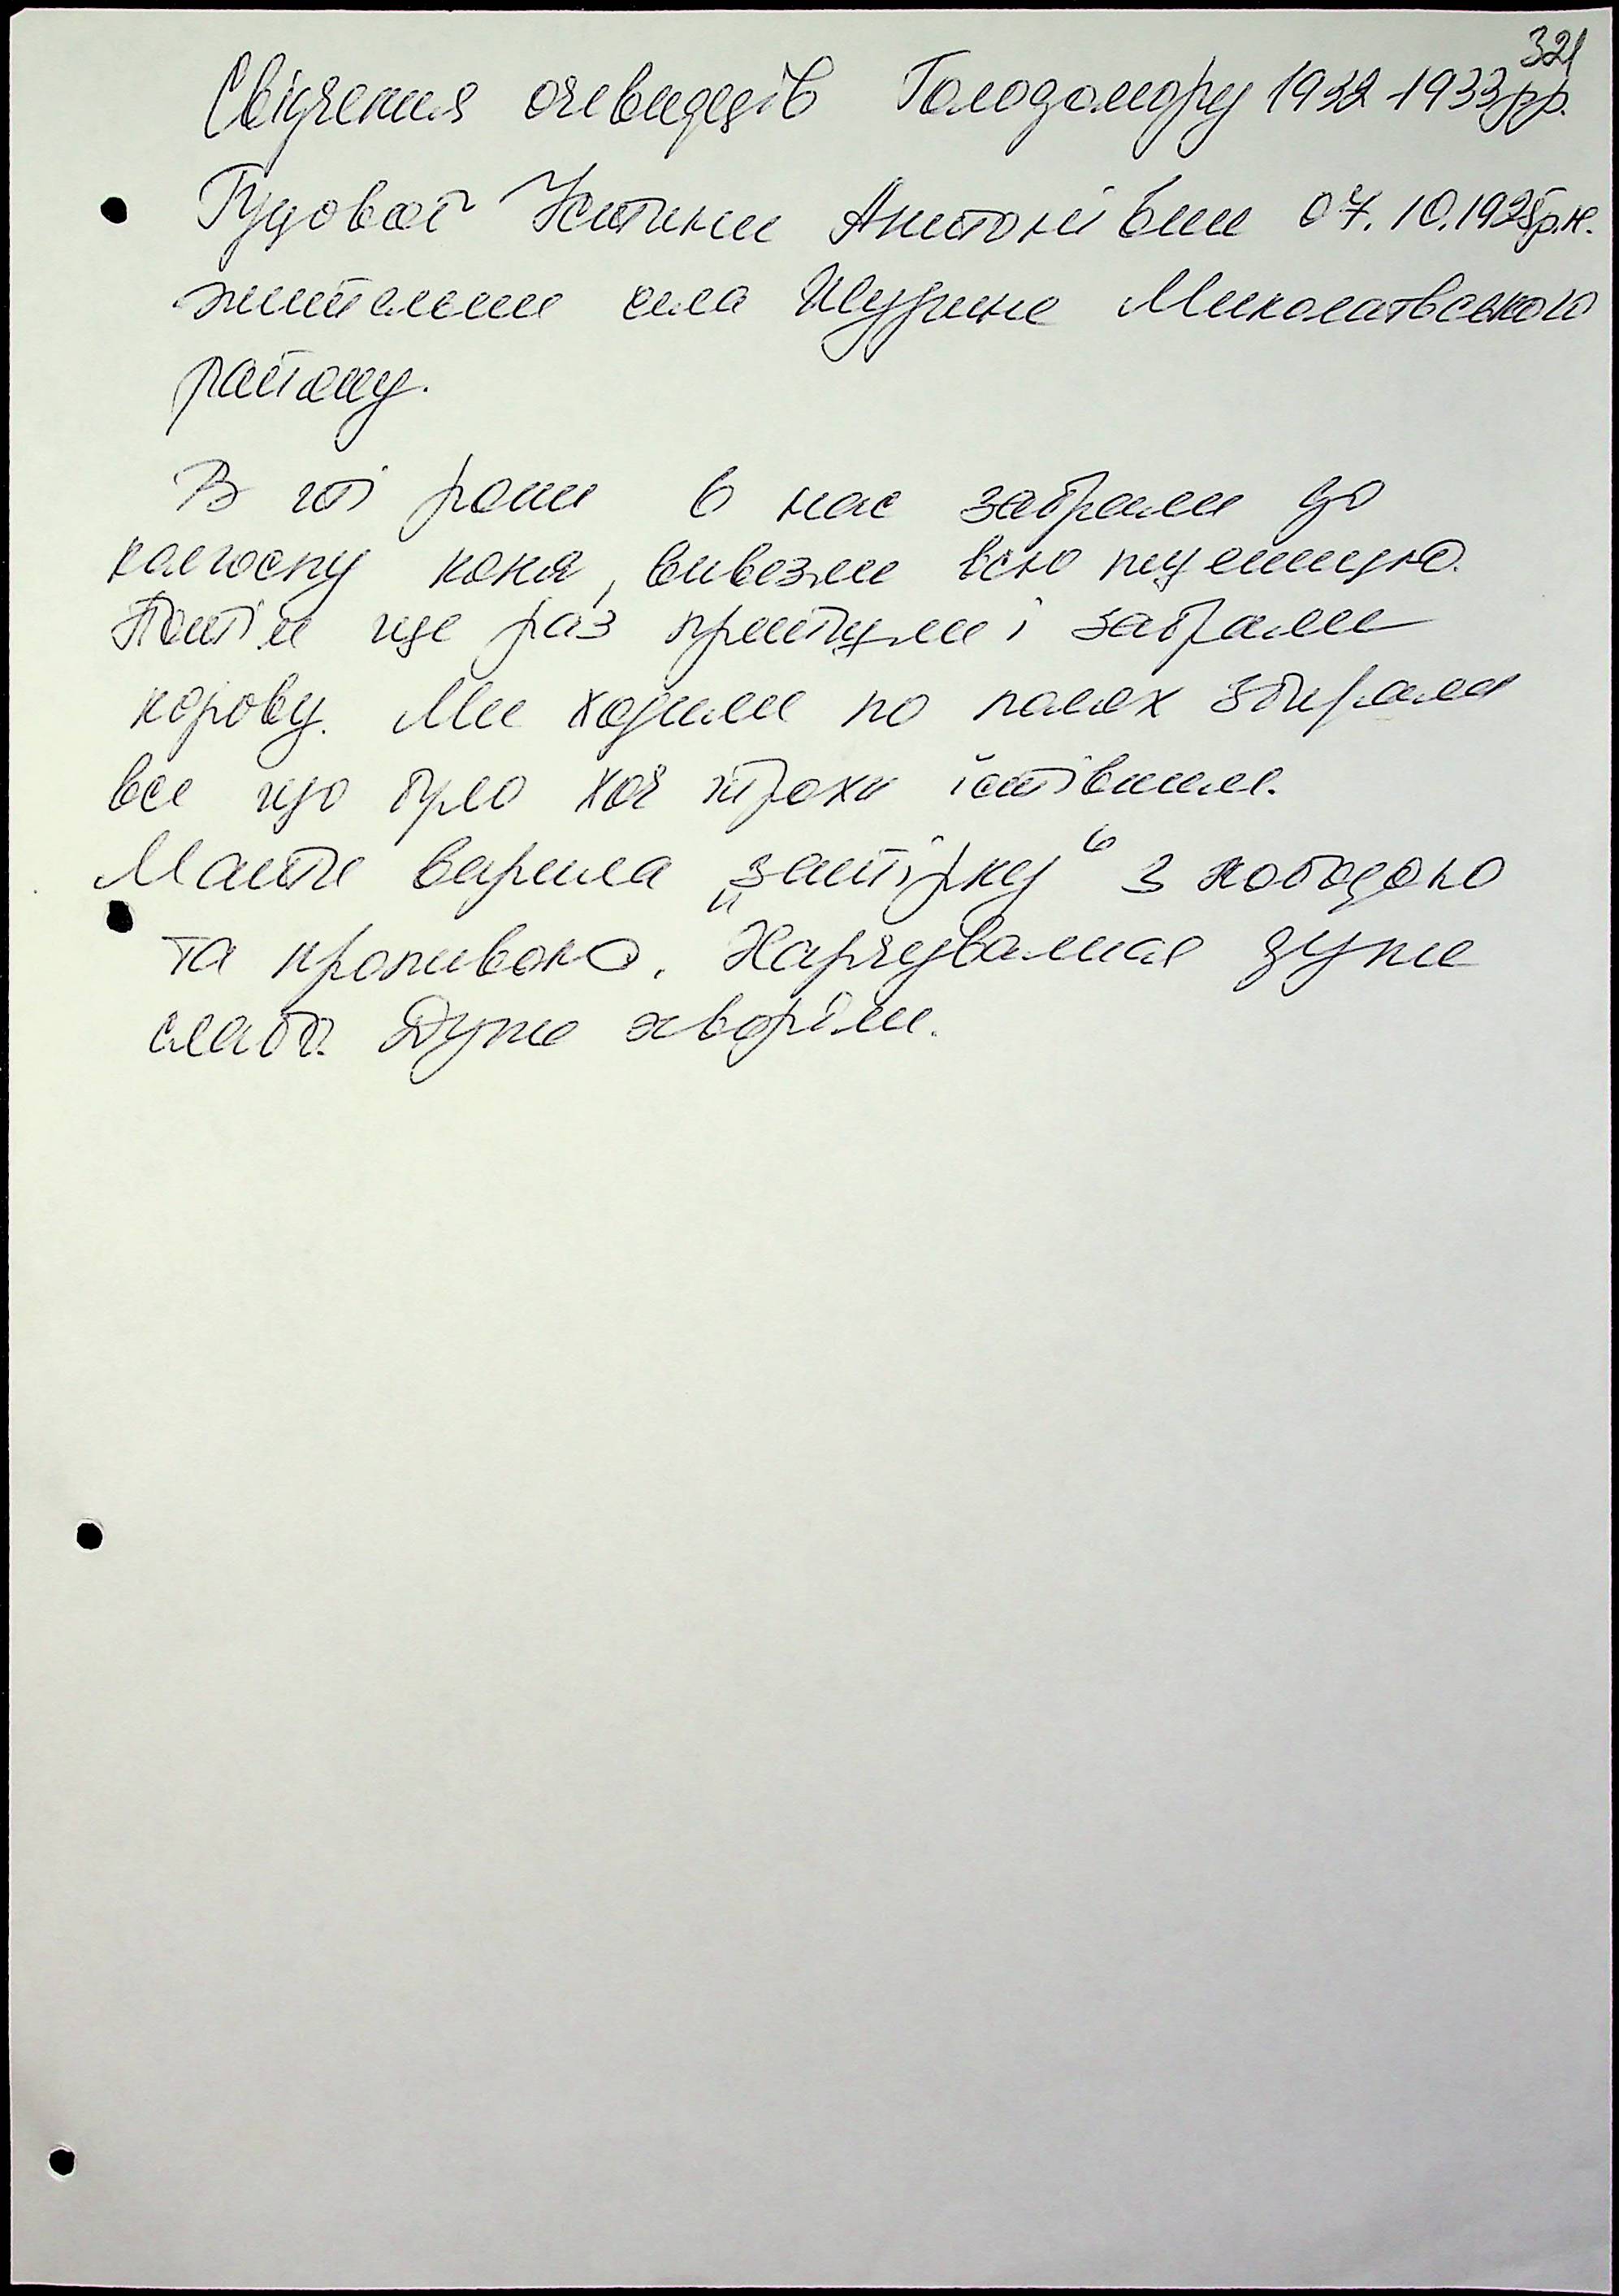 321
Свідчення очевидців Голодомору 1932-1933рр.
Гудової Устини Антонівни 07.10.1925р.н.
жительки села Щурине Миколаївського
району.
В ті роки в нас забрали до
колгоспу коня, вивезли всю пшеницю.
Потім ще раз прийшли і забрали
корову. Ми ходили по полях збирали
все що було хоч трохи їстівним.
Мати варила „затірку“ з лободою
та кропивою. Харчувалися дуже
слабо. Дуже хворіли.